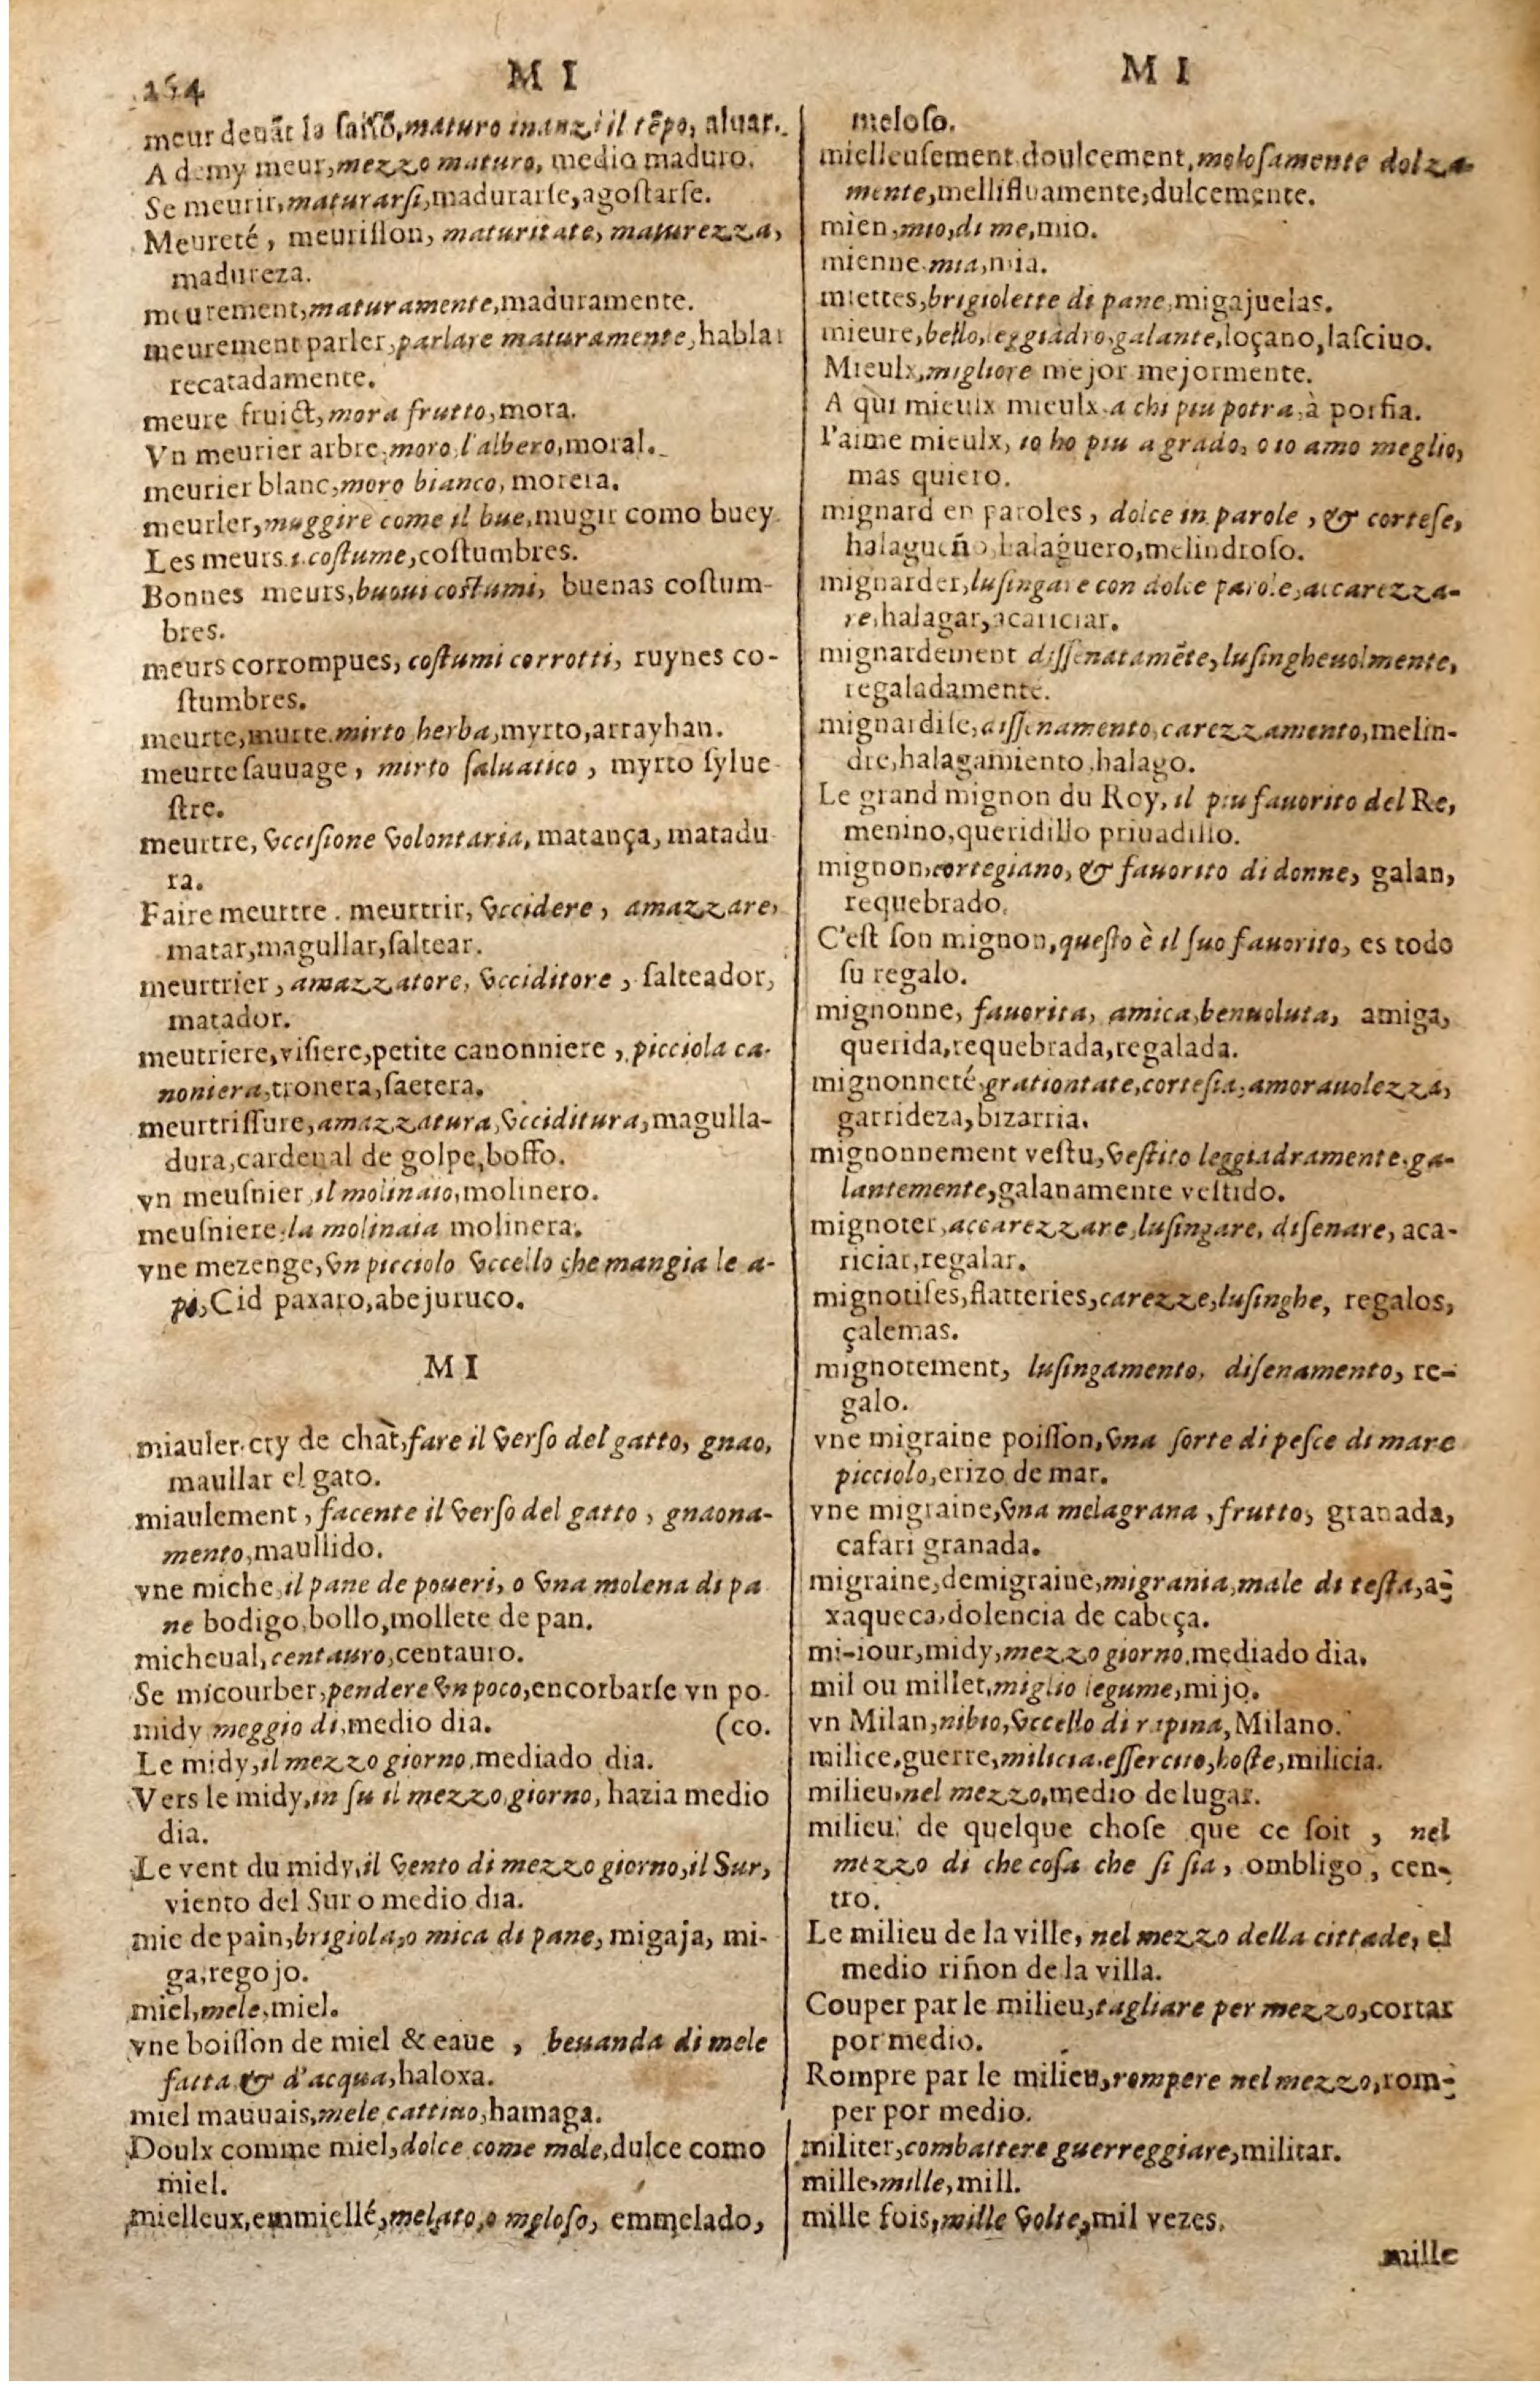 254
M I
M I
meur deuãt la saisõ, maturo inanzi il tẽpo, aluar.
A demy meur, mezzo maturo, medio maduro.
Se meurir, maturarsi, madurarse, agostarse.
Meureté, meurisson, maturitate, maturezza,
madureza.
meurement, maturamente, maduramente.
meurement parler, parlare maturamente, hablar
recatadamente.
meure fruict, mora frutto, mora.
Vn meurier arbre, moro l'albero, moral.
meurier blanc, moro bianco, morera.
meurler, muggire come il bue, mugir como buey
Les meurs. i. costume, costumbres.
Bonnes meurs, buoui costumi, buenas costum-
bres.
meurs corrompues, costumi corrotti, ruynes co-
stumbres.
meurte, murte. mirto herba, myrto, arrayhan.
meurte sauuage, mirto saluatico, myrto sylue
stre.
meurtre, vccisione volontaria, matança, matadu
ra.
Faire meurtre. meurtrir, vccidere, amazzare,
matar, magullar, saltear.
meurtrier, amazzatore, vcciditore, salteador,
matador.
meutriere, visiere, petite canonniere, picciola ca-
noniera, tronera, saetera.
meurtrissure, amazzatura, vcciditura, magulla-
dura, cardenal de golpe, boffo.
vn meusnier, il molinaio, molinero.
meusniere, la molinaia molinera.
vne mezenge, vn picciolo vccello che mangia le a-
pi, Cid paxaro, abejuruco.
M I
miauler. cry de chat, fare il verso del gatto, gnao,
maullar el gato.
miaulement, facente il verso del gatto, gnaona-
mento, maullido.
vne miche, il pane de poueri, o vna molena di pa
ne bodigo, bollo, mollete de pan.
micheual, centauro, centauro.
Se micourber, pendere vn poco, encorbarse vn po-
midy meggio di, medio dia. (co.
Le midy, il mezzo giorno, mediado dia.
Vers le midy, in su il mezzo giorno, hazia medio
dia.
Le vent du midy, il vento di mezzo giorno, il Sur,
viento del Sur o medio dia.
mie de pain, brigiola, o mica di pane, migaja, mi-
ga, regojo.
miel, mele, miel.
vne boisson de miel & eaue, beuanda di mele
fatta & d'acqua, haloxa.
miel mauuais, mele cattiuo, hamaga.
Doulx comme miel, dolce come mele, dulce como
miel.
mielleux, emmiellé, melato, o meloso, emmelado,
meloso.
mielleusement doulcement, melosamente dolza-
mente, mellifluamente, dulcemente.
mien, mio, di me, mio.
mienne. mia, mia.
miettes, brigiolette di pane, migajuelas.
mieure, bello, leggiadro, galante, loçano, lasciuo.
Mieulx, migliore mejor mejormente.
A qui mieulx mieulx. a chi piu potra, à porfia.
I'aime mieulx, io ho piu a grado, o io amo meglio,
mas quiero.
mignard en paroles, dolce in parole, & cortese,
halagueño, halaguero, melindroso.
mignarder, lusingare con dolce parole, accarezza-
re, halagar, acariciar.
mignardement dissenatamẽte, lusingheuolmente,
regaladamente.
mignardise, dissenamento, carezzamento, melin-
dre, halagamiento, halago.
Le grand mignon du Roy, il piu fauorito del Re,
menino, queridillo priuadillo.
mignon, cortegiano, & fauorito di donne, galan,
requebrado.
C'est son mignon, questo è il suo fauorito, es todo
su regalo.
mignonne, fauorita, amica, benuoluta, amiga,
querida, requebrada, regalada.
mignonneté, grationtate, cortesia, amorauolezza,
garrideza, bizarria.
mignonnement vestu, vestito leggiadramente. ga-
lantemente, galanamente vestido.
mignoter, accarezzare, lusingare, disenare, aca-
riciar, regalar.
mignotises, flatteries, carezze, lusinghe, regalos,
çalemas.
mignotement, lusingamento, disenamento, re-
galo.
vne migraine poisson, vna sorte di pesce di mare
picciolo, erizo de mar.
vne migraine, vna melagrana, frutto, granada,
cafari granada.
migraine, demigraine, migrania, male di testa, a-
xaqueca, dolencia de cabeça.
mi-iour, midy, mezzo giorno, mediado dia.
mil ou millet, miglio legume, mijo.
vn Milan, nibio, vccello di rapina, Milano.
milice, guerre, milicia. essercito, hoste, milicia.
milieu, nel mezzo, medio de lugar.
milieu de quelque chose que ce soit, nel
mezzo di che cosa che si sia, ombligo, cen-
tro.
Le milieu de la ville, nel mezzo della cittade, el
medio riñon de la villa.
Couper par le milieu, tagliare per mezzo, cortar
por medio.
Rompre par le milieu, rompere nel mezzo, rom-
per por medio.
militer, combattere guerreggiare, militar.
mille, mille, mill.
mille fois, mille volte, mil vezes.
mille